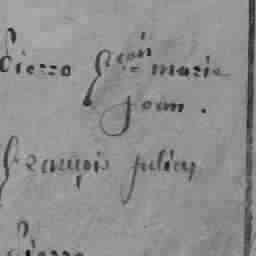 Pierre marie
Jean .
François julien
Pierre